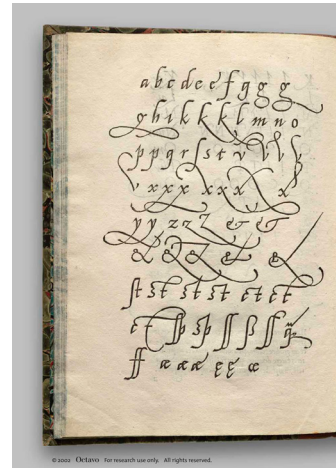 a b c d e e f g g g g
g h i k k k k l m n o
p p q r ſ s t v v v v
v x x x x x x x
y y z z z & &
& & & & &
ſt st st st ct ct
ct þ sþ ſſ ß ſſ
ff æ æ æ ę ę œ
© 2002 Octavo For research use only. All rights reserved.